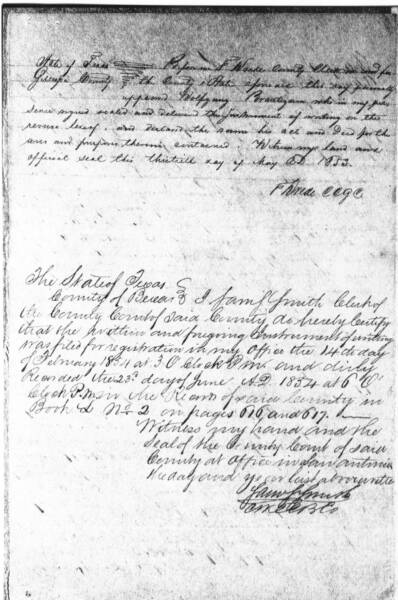 State of Texas Before me F Wrede County Clerk in and for
Gillespie County of the County & State aforesaid this day personally
appeared Wolfgang who in my pre
sence signed sealed and delivered the instrument of writing on the
reverse leaf, and declared the same his act and deed for the
uses and purposes therein contained. Witness my hand and
official seal this thirtieth day of May AD 1853.
F Wrede CCGC
The State of Texas
County of Bexar I Saml Smith Clerk of
the County Court of said County, do hereby Certify
that the written and foregoing Instrument of writing
was filed for registration in my Office the 14th day
of February 1854 at 3 O'Clock P.M. and duly
Recorded the 23d day of June A.D. 1854 at 6 O'
Clock P.M. in the Records of said County in
Book L No 2 on pages 616 and 617.
Witness my hand and the
seal of the County Court of said
County at Office in San Antonio
the day and year last above
Saml Smith